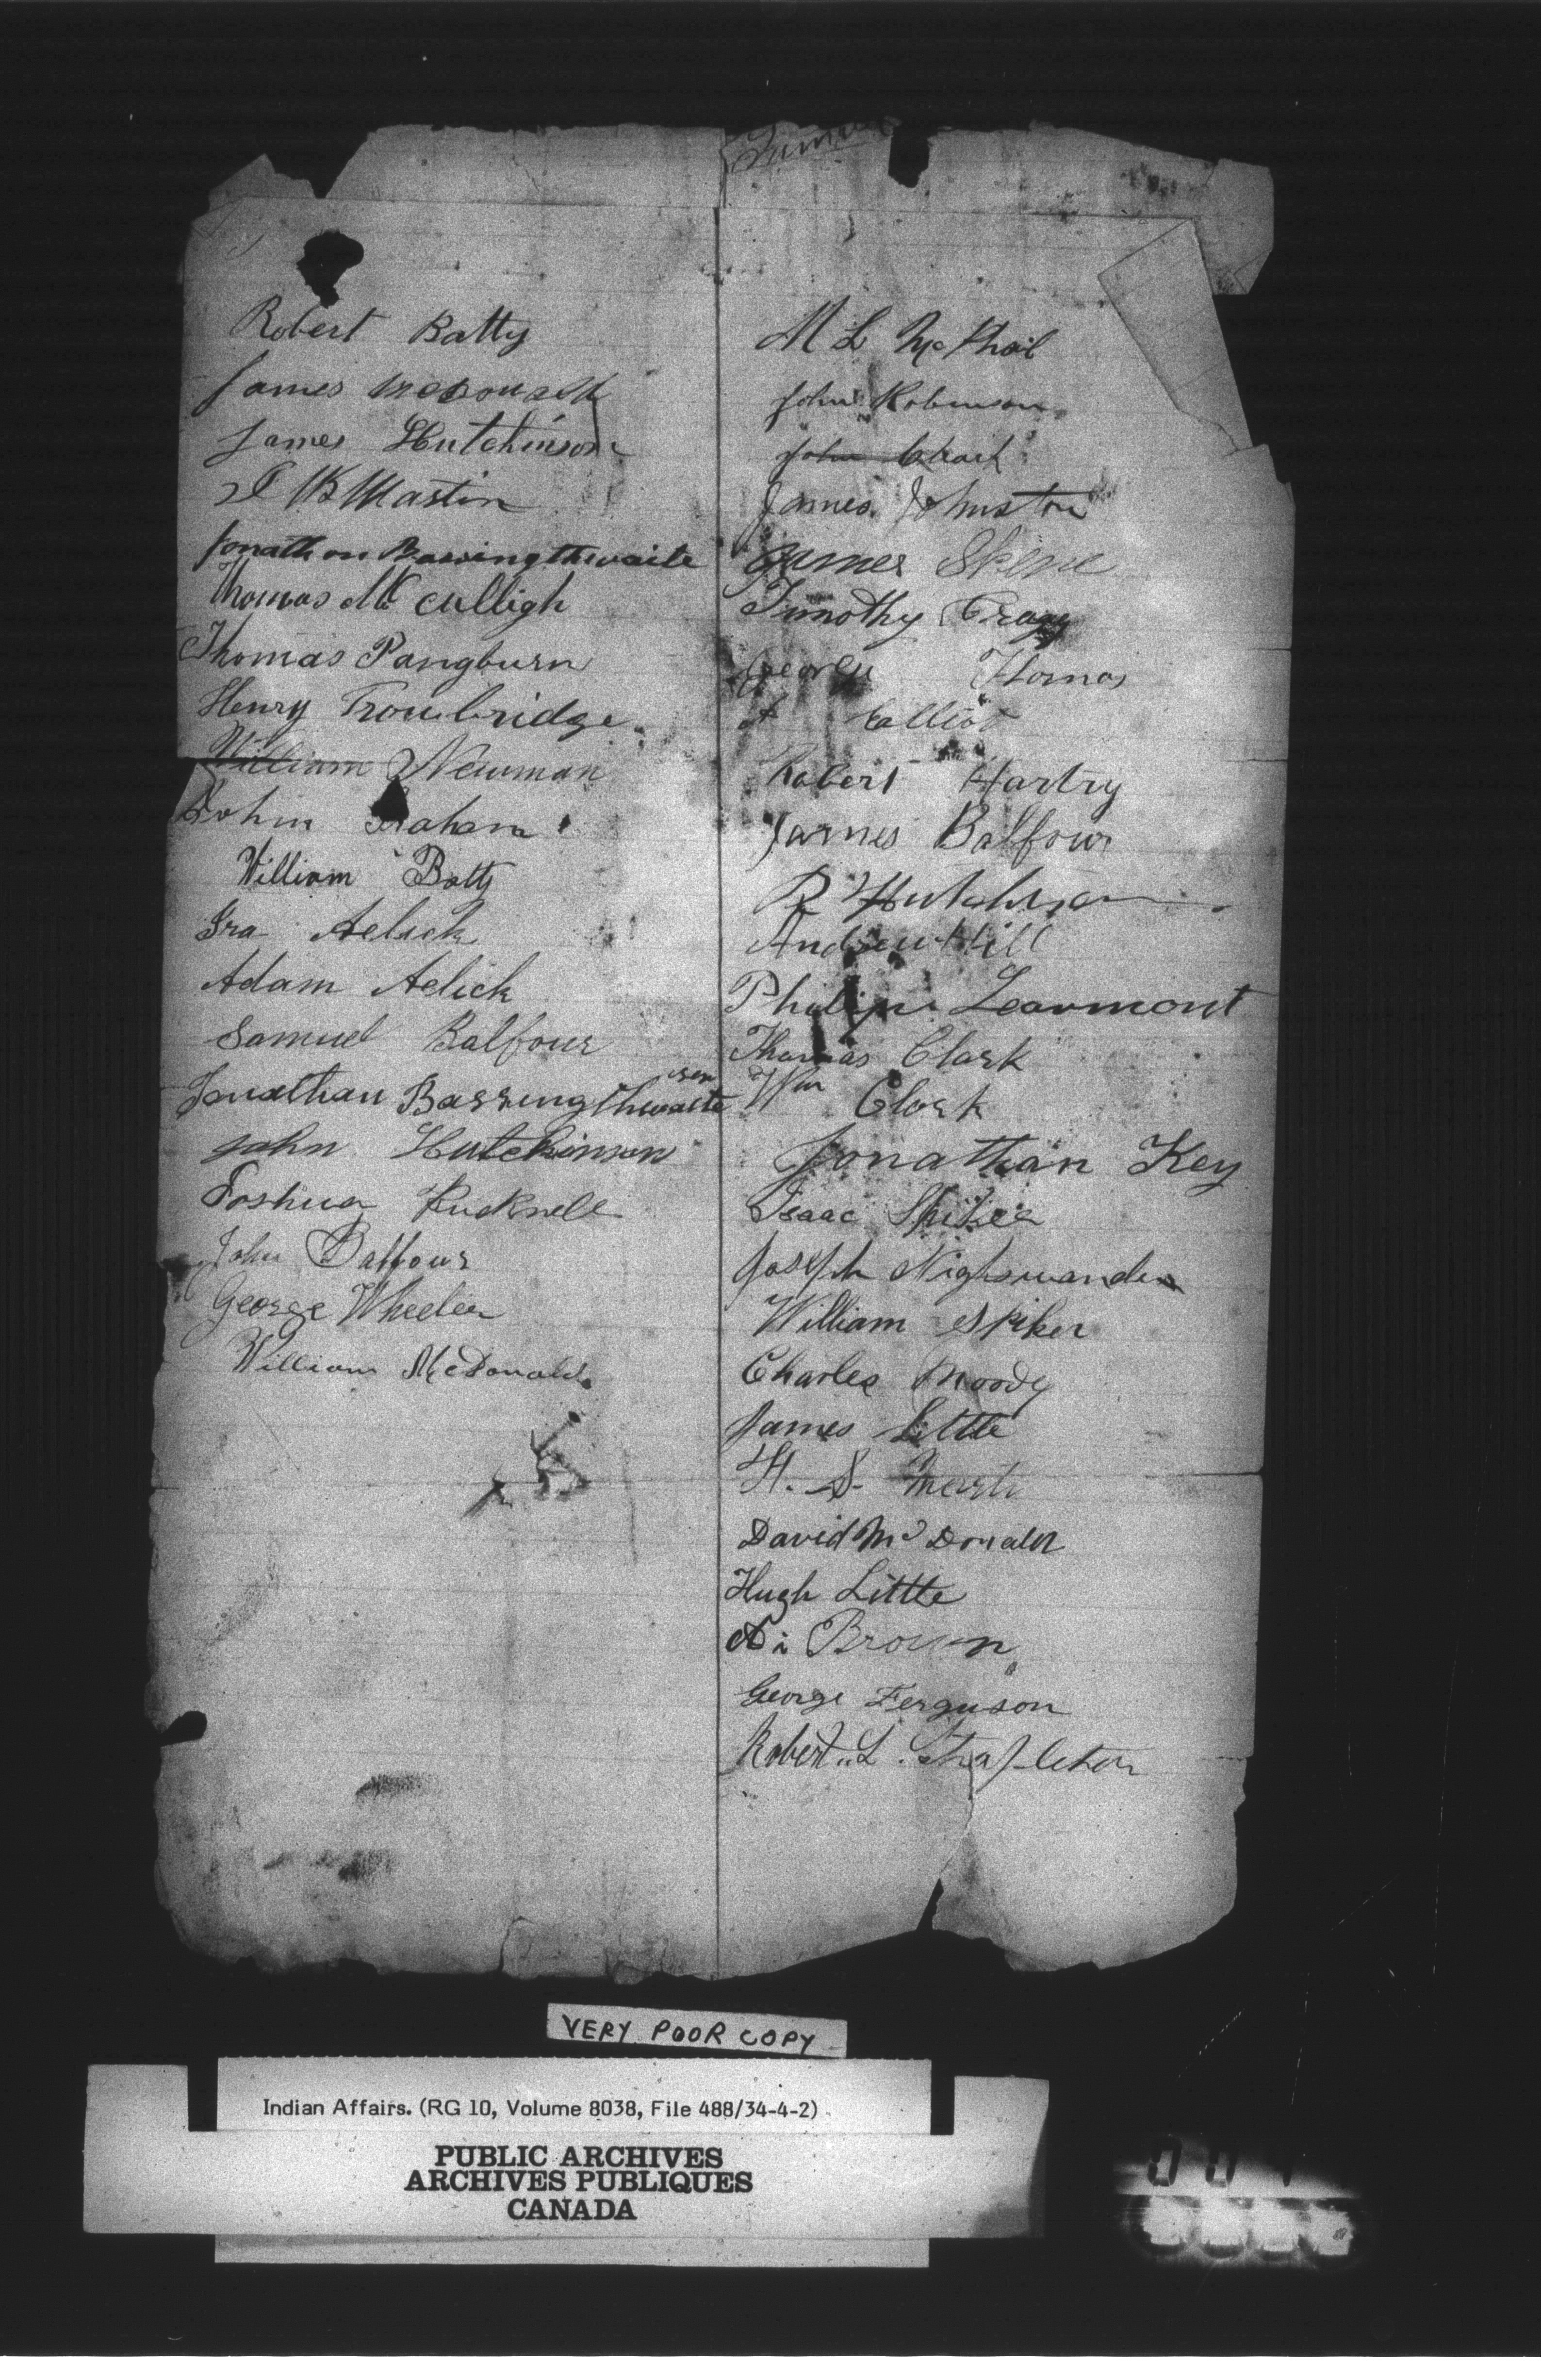 Robert Batty
James McDonald
James Hutchinson
Martin
Jonathon Bassingthwaite
Thomas Mc Culligh
Thomas Pangburn
Henry Troubridge
William Newman
John Graham
William Batty
Ira Aelick
Adam Aelick
Samuel Balfour
Jonathan Bassingthwaite sen
John Hutchinson
Joshua Bucknell
John Balfour
George Wheeler
William McDonald
M L McPhail
John Robinson
John
James Johnston
James Skene
Timothy Cragg
George Thomas
A Elliot
Robert Hartry
James Balfour
R Hutchison
Andrew Hill
Philip Learmont
Thomas Clark
Wm Clark
Jonathan Key
Isaac Spiker
Joseph Nighswander
William Spiker
Charles Moody
James Little
H. S.
David McDonald
Hugh Little
Brown
George Ferguson
Robert L. Stapleton
VERY POOR COPY
Indian Affairs. (RG 10, Volume 8038, File 488/34-4-2)
PUBLIC ARCHIVES
ARCHIVES PUBLIQUES
CANADA